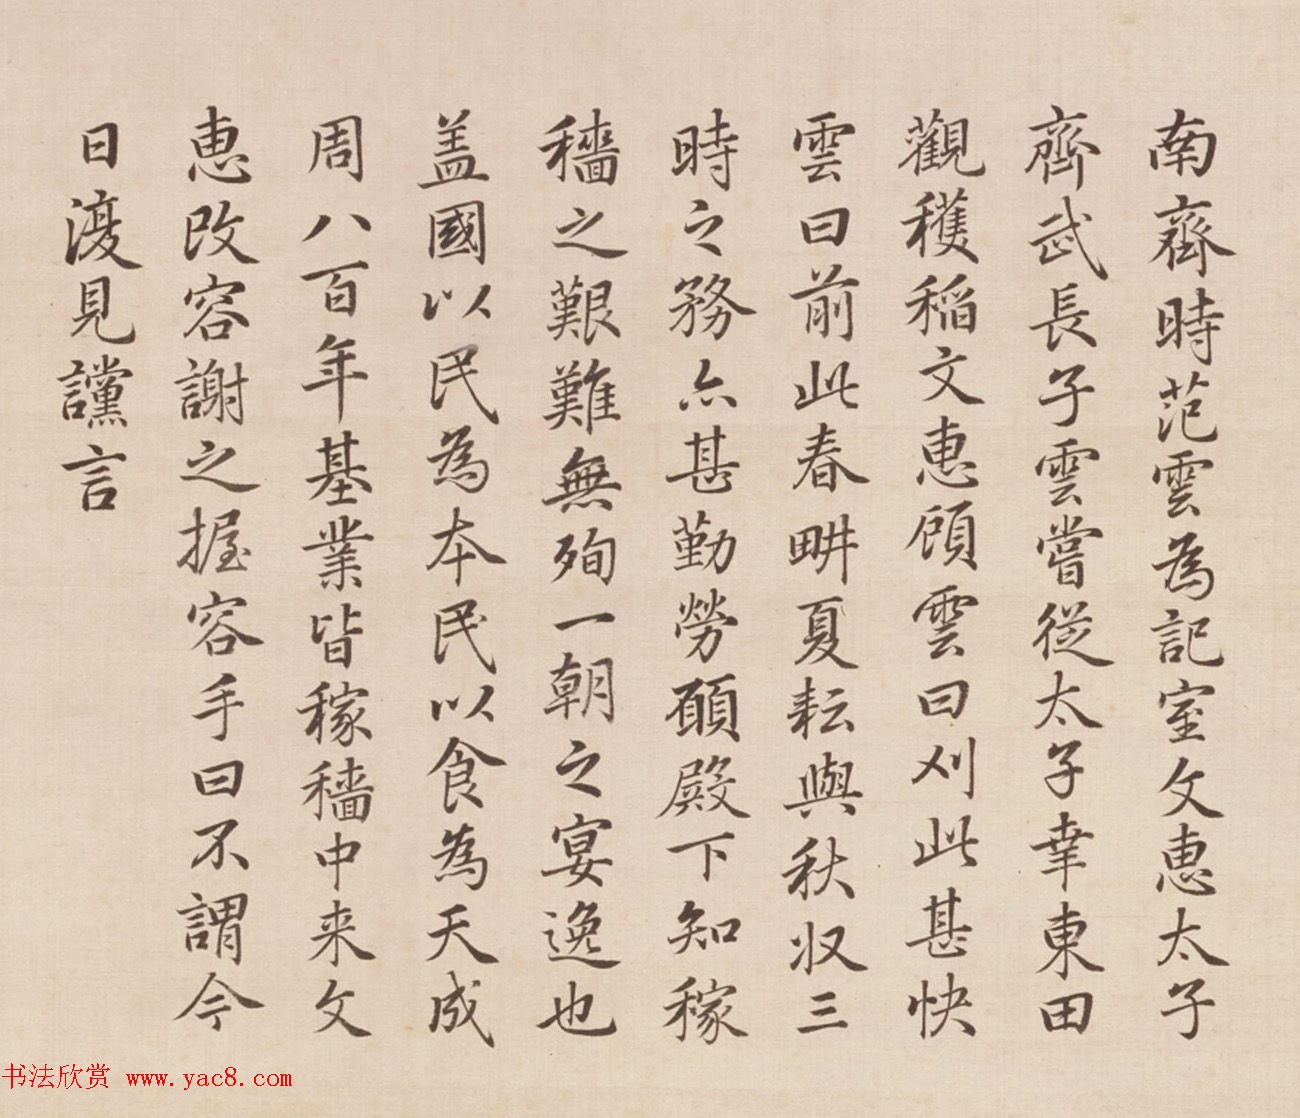 南齊時范雲為記室文惠太子
齊武長子雲嘗從太子幸東田
觀穫稻文惠顧雲曰刈此甚快
雲曰前此春畊夏耘與秋收三
時之務亦甚勤勞願殿下知稼
穡之艱難無殉一朝之宴逸也
盖國以民為本民以食為天成
周八百年基業皆稼穡中来文
惠改容謝之握容手曰不謂今
日復見讜言
书法欣赏 www.yac8.com